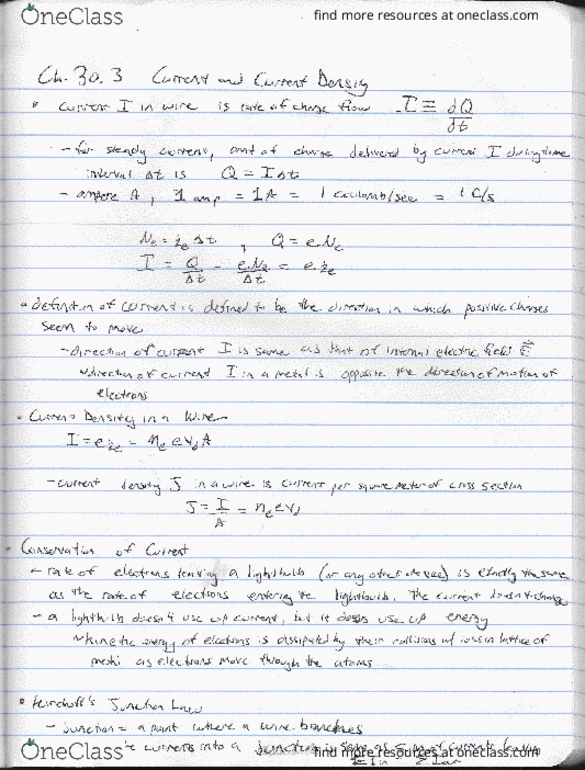 OneClass
find more resources at oneclass.com
Ch. 30.3 Current and Current Density
• Current I in wire is rate of charge flow I ≡ dQ/dt
- for steady current, amt of charge delivered by current I during time
interval Δt is Q = IΔt
- ampere A, 1 amp = 1A = 1 coulomb/sec = 1 C/s
Ne = ie Δt, Q = eNe
I = Q/Δt = eNe/Δt = e ie
• definition of current is defined to be the direction in which positive charges
seem to move
- direction of current I is same as that of internal electric field E
direction of current I in a metal is opposite the direction of motion of
electrons
• Current Density in a Wire
I = e ie = ne e vd A
- current density J in a wire is current per square meter of cross section
J = I/A = ne e vd
- Conservation of Current
- rate of electrons leaving a lightbulb (or any other device) is exactly the same
as the rate of electrons entering the lightbulb. The current doesn't change
- a lightbulb doesn't use up current, but it does use up energy
~ kinetic energy of electrons is dissipated by their collisions w/ ions in lattice of
as electrons move through the atoms
• Kirchoff's Junction Law
- junction = a point where a wire branches
currents into a junction is same as
OneClass
find more resources at oneclass.com